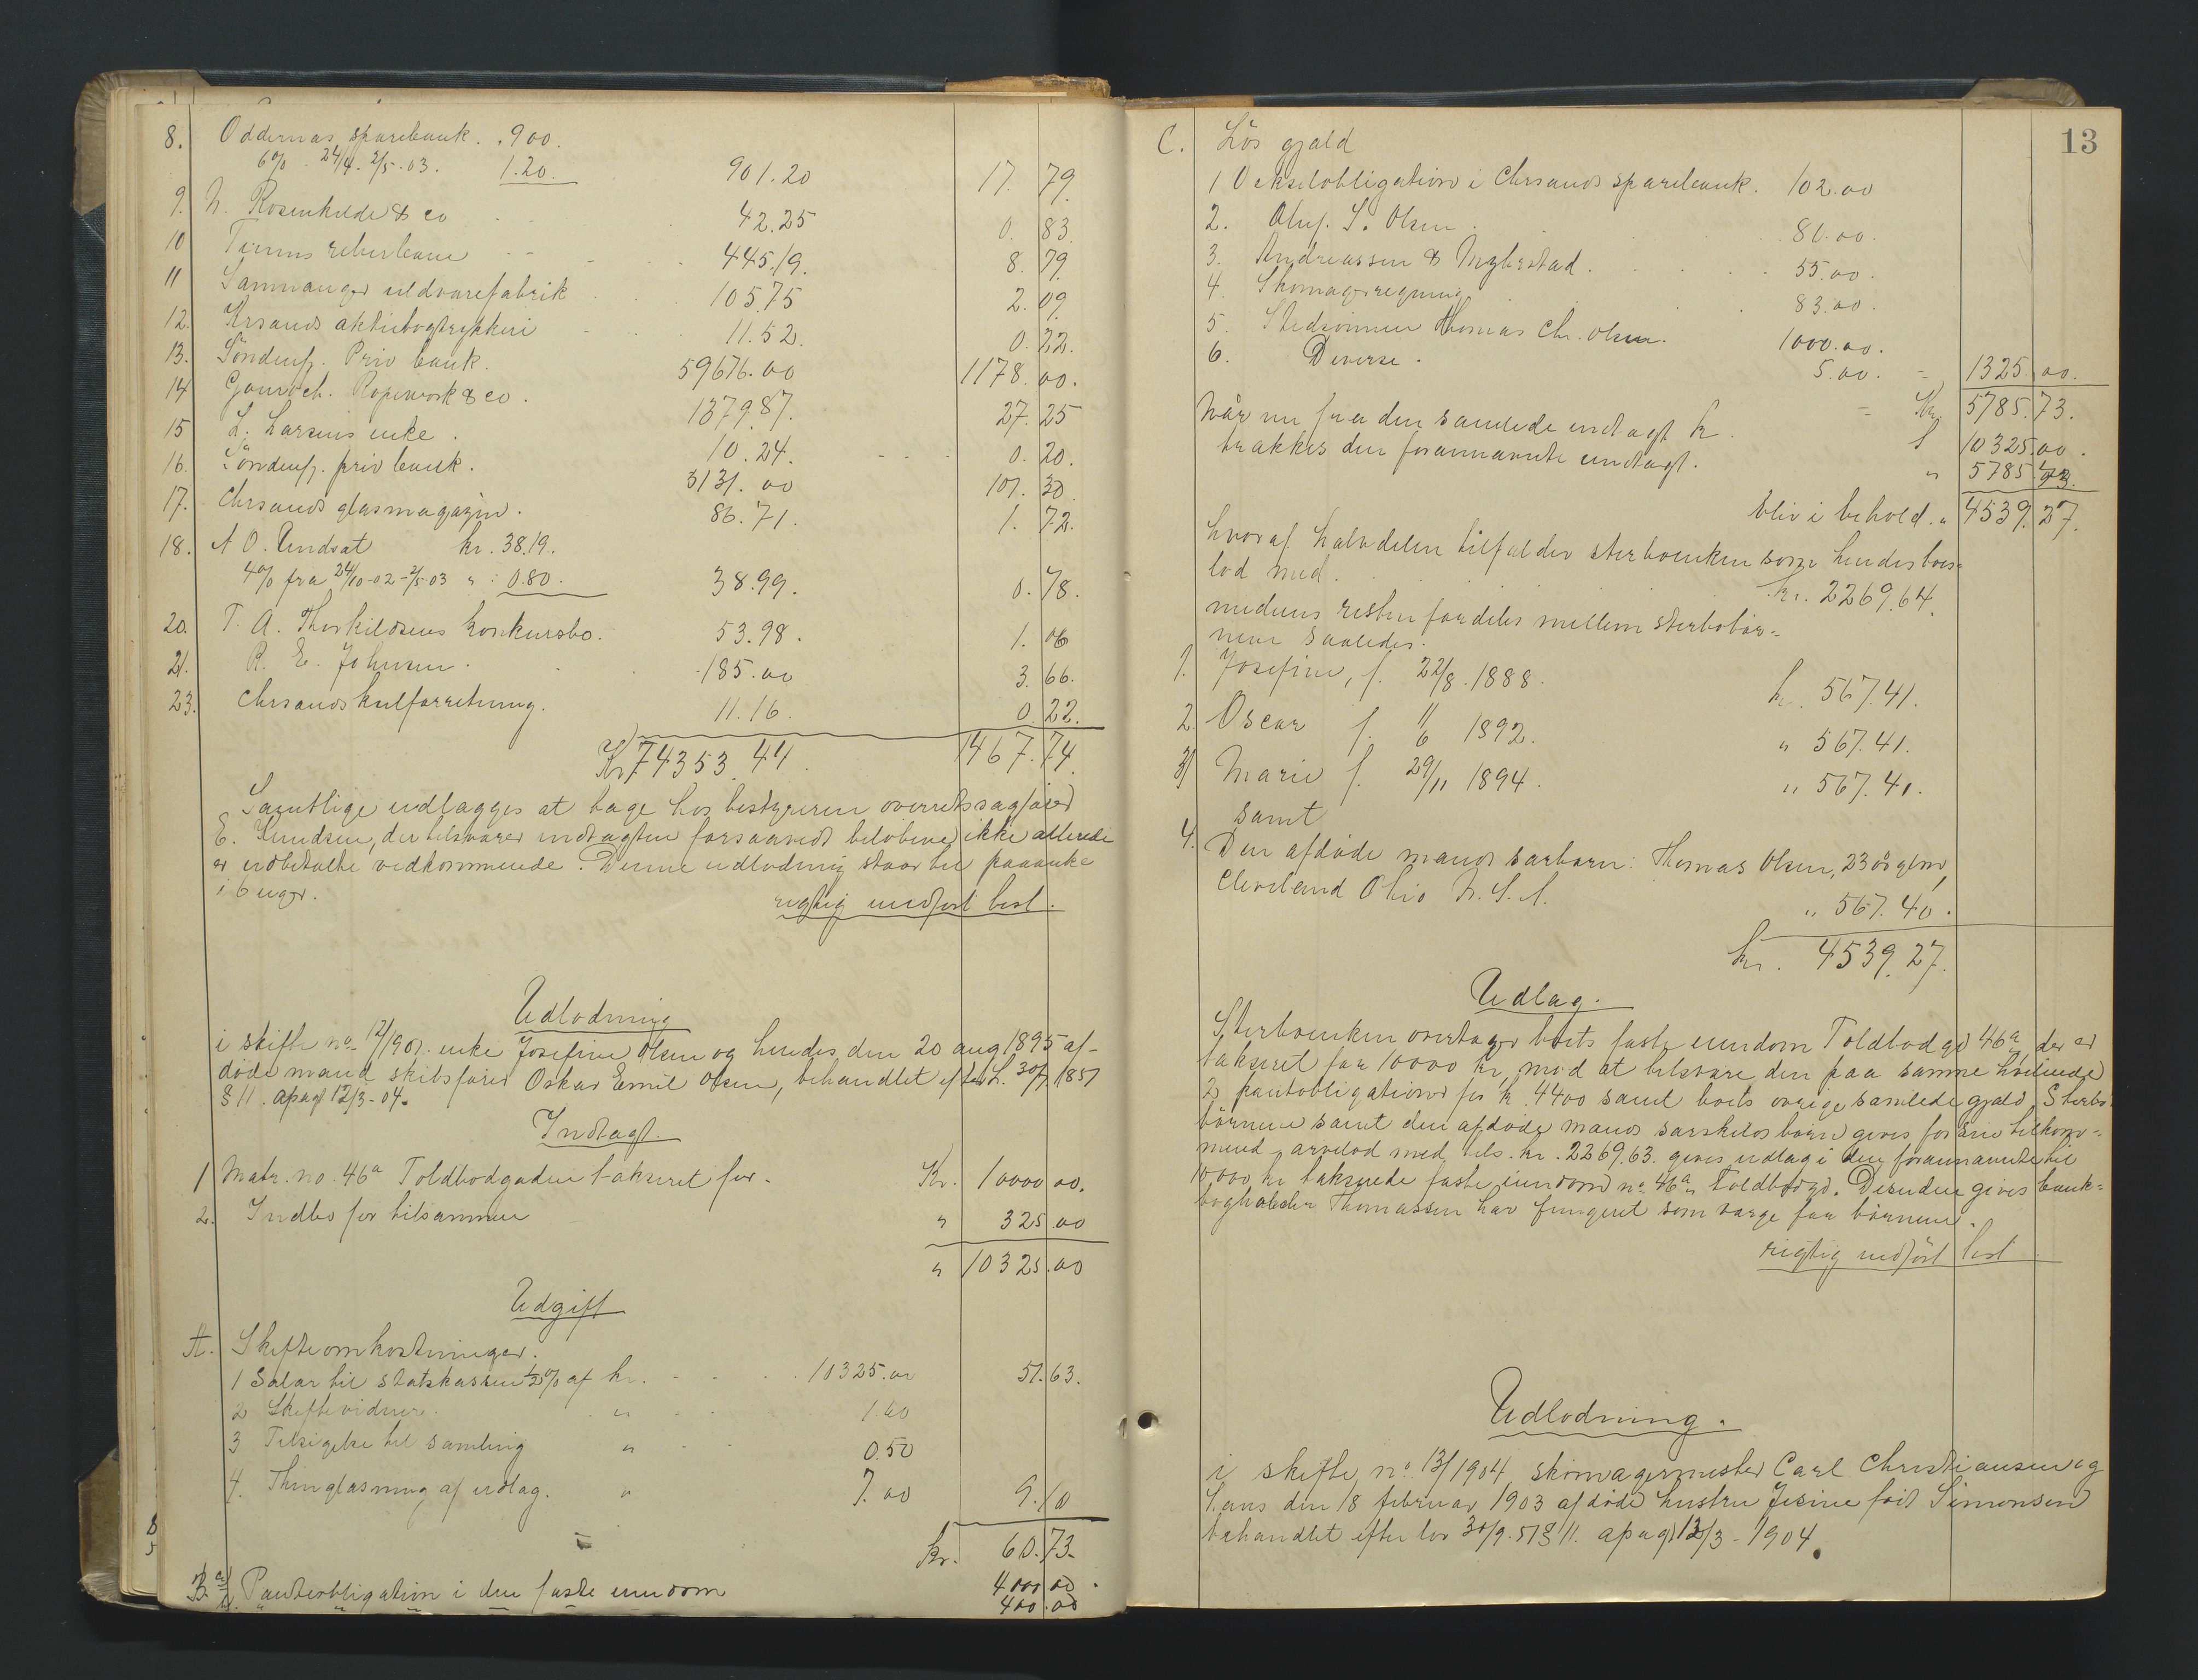 8. Oddernas sparebank. . 900.
6% 24/4. 2/5. 03. 1.20. 901.20 17. 79.
9. N. Rosenkilde & co 42.25 0. 83
10 Tinns reberbane 445.19. 8. 79.
11 Samnanger uldvarefabrik 105.75 2. 09.
12. Krsands aktiebogtrykkeri 11.52. 0. 22.
13. Söndenfj. Priv bank. 59676.00 1178. 00.
14 Gourock. Ropework & co. 1379.87. 27. 25
15 L. Larsens enke. 10.24. 0. 20.
16. Söndenfj. priv bank. 5131.00 101. 30.
17. Chrsands glasmagazin. 86.71. 1. 72.
18. A O. Undsat kr. 38.19.
4% fra 24/10-02-2/5-03 " : 0.80. 38.99. 0. 78.
20. T. A. Thorkildsens konkursbo. 53.98. 1. 06
21. R. E. Johnsen. 185.00 3. 66.
23. Chrsands kulforretning. 11.16. 0. 22.
Kr 74353.44. 1467. 74.
Samtlige udlægges at tage hos bestyreren overretssagfører
E. Knudsen, der tilsvarer indtægten forsaavidt beløbene ikke allerede
er udbetalte vedkommende. Denne udlodning staar til paaanke
i 6 uger.
rigtig indført best.
Udlodning
i skifte no 12/1901. enke Josefine Olsen og hendes den 20 aug 1895 af-
døde mand skibsfører Oskar Emil Olsen, behandlet ef. Lov 30/7 1851
§ 11. apagt 12/3-04.
Indtægt.
1 Matr. no. 46a Toldbodgaden takseret for. Kr. 10000 00.
2. Indbo for tilsammen " 325.00
" 10325.00
Udgift
A. Skifteomkostninger.
1 Salær til statskassen 1/2% af kr. 10325.00 51.63.
2 Skiftevidnere. " 1.60
3 Tilsigelse til samling " 0.50
4. Thinglæsning af udlæg. " 7.00 9.10
Kr. 60.73.
B. Panteobligation i den faste eiendom 4000 00.
400.00
13
C. Løs gjæld
1 Vekselobligation i Chrsands sparebank. 102.00
2. Oluf. S. Olsen. 80.00.
3. Andreassen & Myhrstad. 55.00.
4. Skomagerregning 83.00.
5. Stedsönnen Thomas Chr. Olsen. 1000.00.
6. Diverse. 5.00. 1325.00.
Kr. 5785.73.
Når nu fra den samlede indtægt kr. 10325.00.
trækkes den forannævnte undtagt. " 5785.73.
bliv i behold. " 4539.27.
hvoraf halvdelen tilfalder sterboenken som hendes boes-
lod med. kr. 2269.64.
medens resten fordeles mellem sterbobör-
nene saaledes.
1. Josefine, f. 22/8. 1888. kr. 567.41.
2. Oscar f. 11/6 1892. " 567.41.
3) Marie f. 29/11 1894. " 567.41.
samt
4. Den afdøde mands særbarn: Thomas Olsen, 23 år glm,
Cleveland Ohio N. S. A. " 567.40.
kr. 4539.27.
Udlæg.
Sterboenken overtager boets faste eiendom Toldbodgd 46a, der er
takseret for 10000 kr, mod at tilsvare den paa samme hvilende
2 pantobligationer for kr. 4400 samt boets øvrige samlede gjæld. Sterbo-
börnene samt den afdøde mands særskilds børn gives for sin tilkom-
mende arvelod med tils. kr. 2269.63. gives udlæg i den forannævnte til
10,000 kr. takserede faste eiendom no 46a Toldbodgd. Desuden gives bank-
bogholder Thomassen har fungeret som værge for börnene.
rigtig indført best.
Udlodning.
i skifte no. 13/1904 skomagermester Carl Christiansen og
hans den 18 februar 1903 afdöde hustru Jesine född Simonsen
behandlet efter lov 30/7.51 § 11. apagt 12/3-1904.